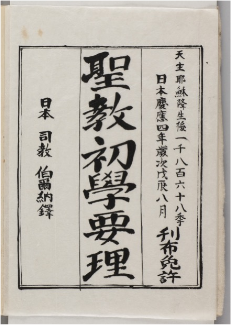 天主耶蘇降生後一千八百六十八秊
日本慶應四年歲次戊辰八月
刊布免許
聖教初學要理
日本 司教 伯爾納鐸